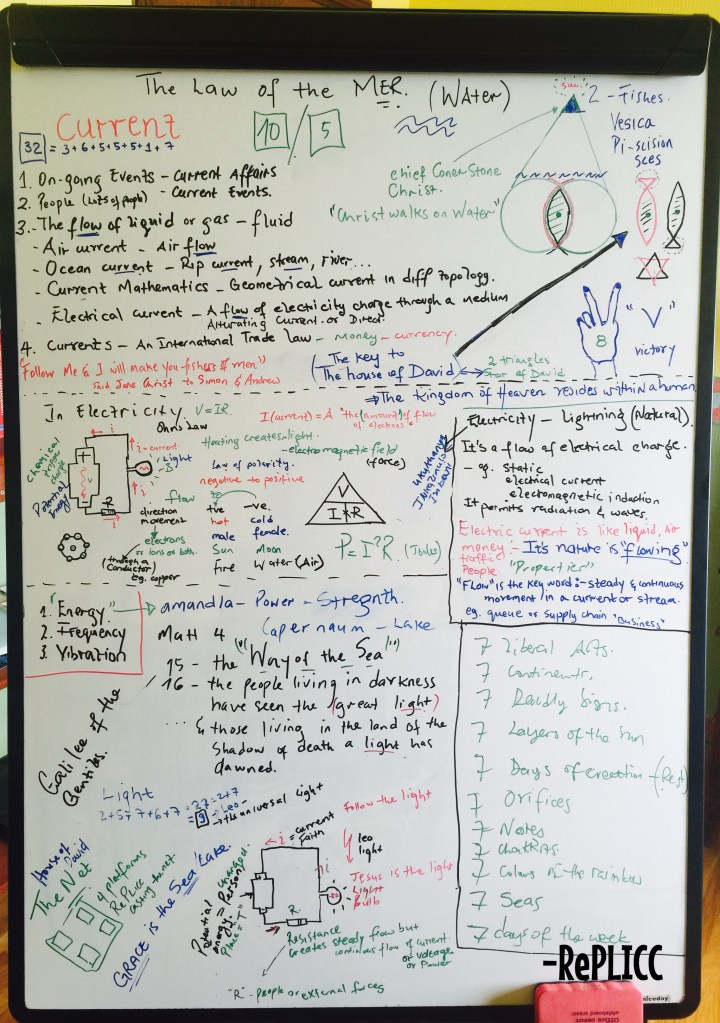 The Law of the MER. (WAter)
Current
32 = 3+6+5+5+5+1+7
10 / 5
1. On-going Events - Current Affairs
2. People (Lots of people) - Current Events.
3. The flow of liquid or gas - fluid
- Air current - Air flow
- Ocean current - Rip current, stream, river...
- Current Mathematics - Geometrical current in diff topology.
- Electrical current - A flow of electricity charge through a medium
Alturating Current or Direct.
4. Currents - An International Trade Law - money - currency.
"Follow Me & I will make you fishers of men"
Said Jesus Christ to Simon & Andrew
chief Coner Stone
Christ.
"Christ walks on Water"
Sun
2 - Fishes.
Vesica
Pi-scision
sces
8
"V"
victory
(The key to
The house of David)
2 triangles
Star of David
⇒ The Kingdom of Heaven resides within a human
In Electricity. V=IR.
Ohms Law
I (current) = A "the (amount) of flow
of electrons"
Heating creates light.
- electromagnetic field
(force)
Law of polarity.
negative to positive
+ve -ve.
hot cold
male female.
Sun Moon
fire Water (Air)
V
I * R
P = I²R (Joules)
Chemical
Potential
Energy
i = current
Light
R
i
flow
direction
movement
electrons
= ions or both.
through a
(Conductor)
eg. copper
Electricity - Lightning (Natural).
It's a flow of electrical charge.
- eg. Static
electrical current
electomagnetic induction
It permits radiation & waves.
Electric current is like liquid, Air
money
traffic
People
:- It's nature is "flowing"
"Properties"
"Flow" is the key word:- steady & continuous
movement in a current or stream.
eg. queue or supply chain "Business"
1. "Energy"
2. Frequency
3. Vibration
amandla - Power - Stregnth.
Matt 4 Capernaum - Lake
15 - the "Way of the Sea"
16 - the people living in darkness
have seen the (great light)
... & those living in the land of the
shadow of death a light has
dawned.
Galilee of the
Gentiles.
Light
2+5+7+6+7 = 27 = 2+7
= 9 - Leo -
→ the universal light
House of
David
The Net
4 platforms
RePLICC
casting the net.
GRACE is the Sea/Lake.
Potential changed.
energy = Person/
Place = "T"
i = current
Faith
i
R
Follow the light
leo
light
Jesus is the light
Light
Bulb
Resistance
creates steady flow but
continuous flow of current
or voltage
or Power
"R" - people or external forces
7 liberal Arts.
7 Continents.
7 Deadly Signs.
7 Layers of the Sun
7 Days of creation - (Rest)
7 Orifices
7 Notes
7 chakras
7 Colours of the rainbow
7 Seas
7 days of the week
-RePLICC